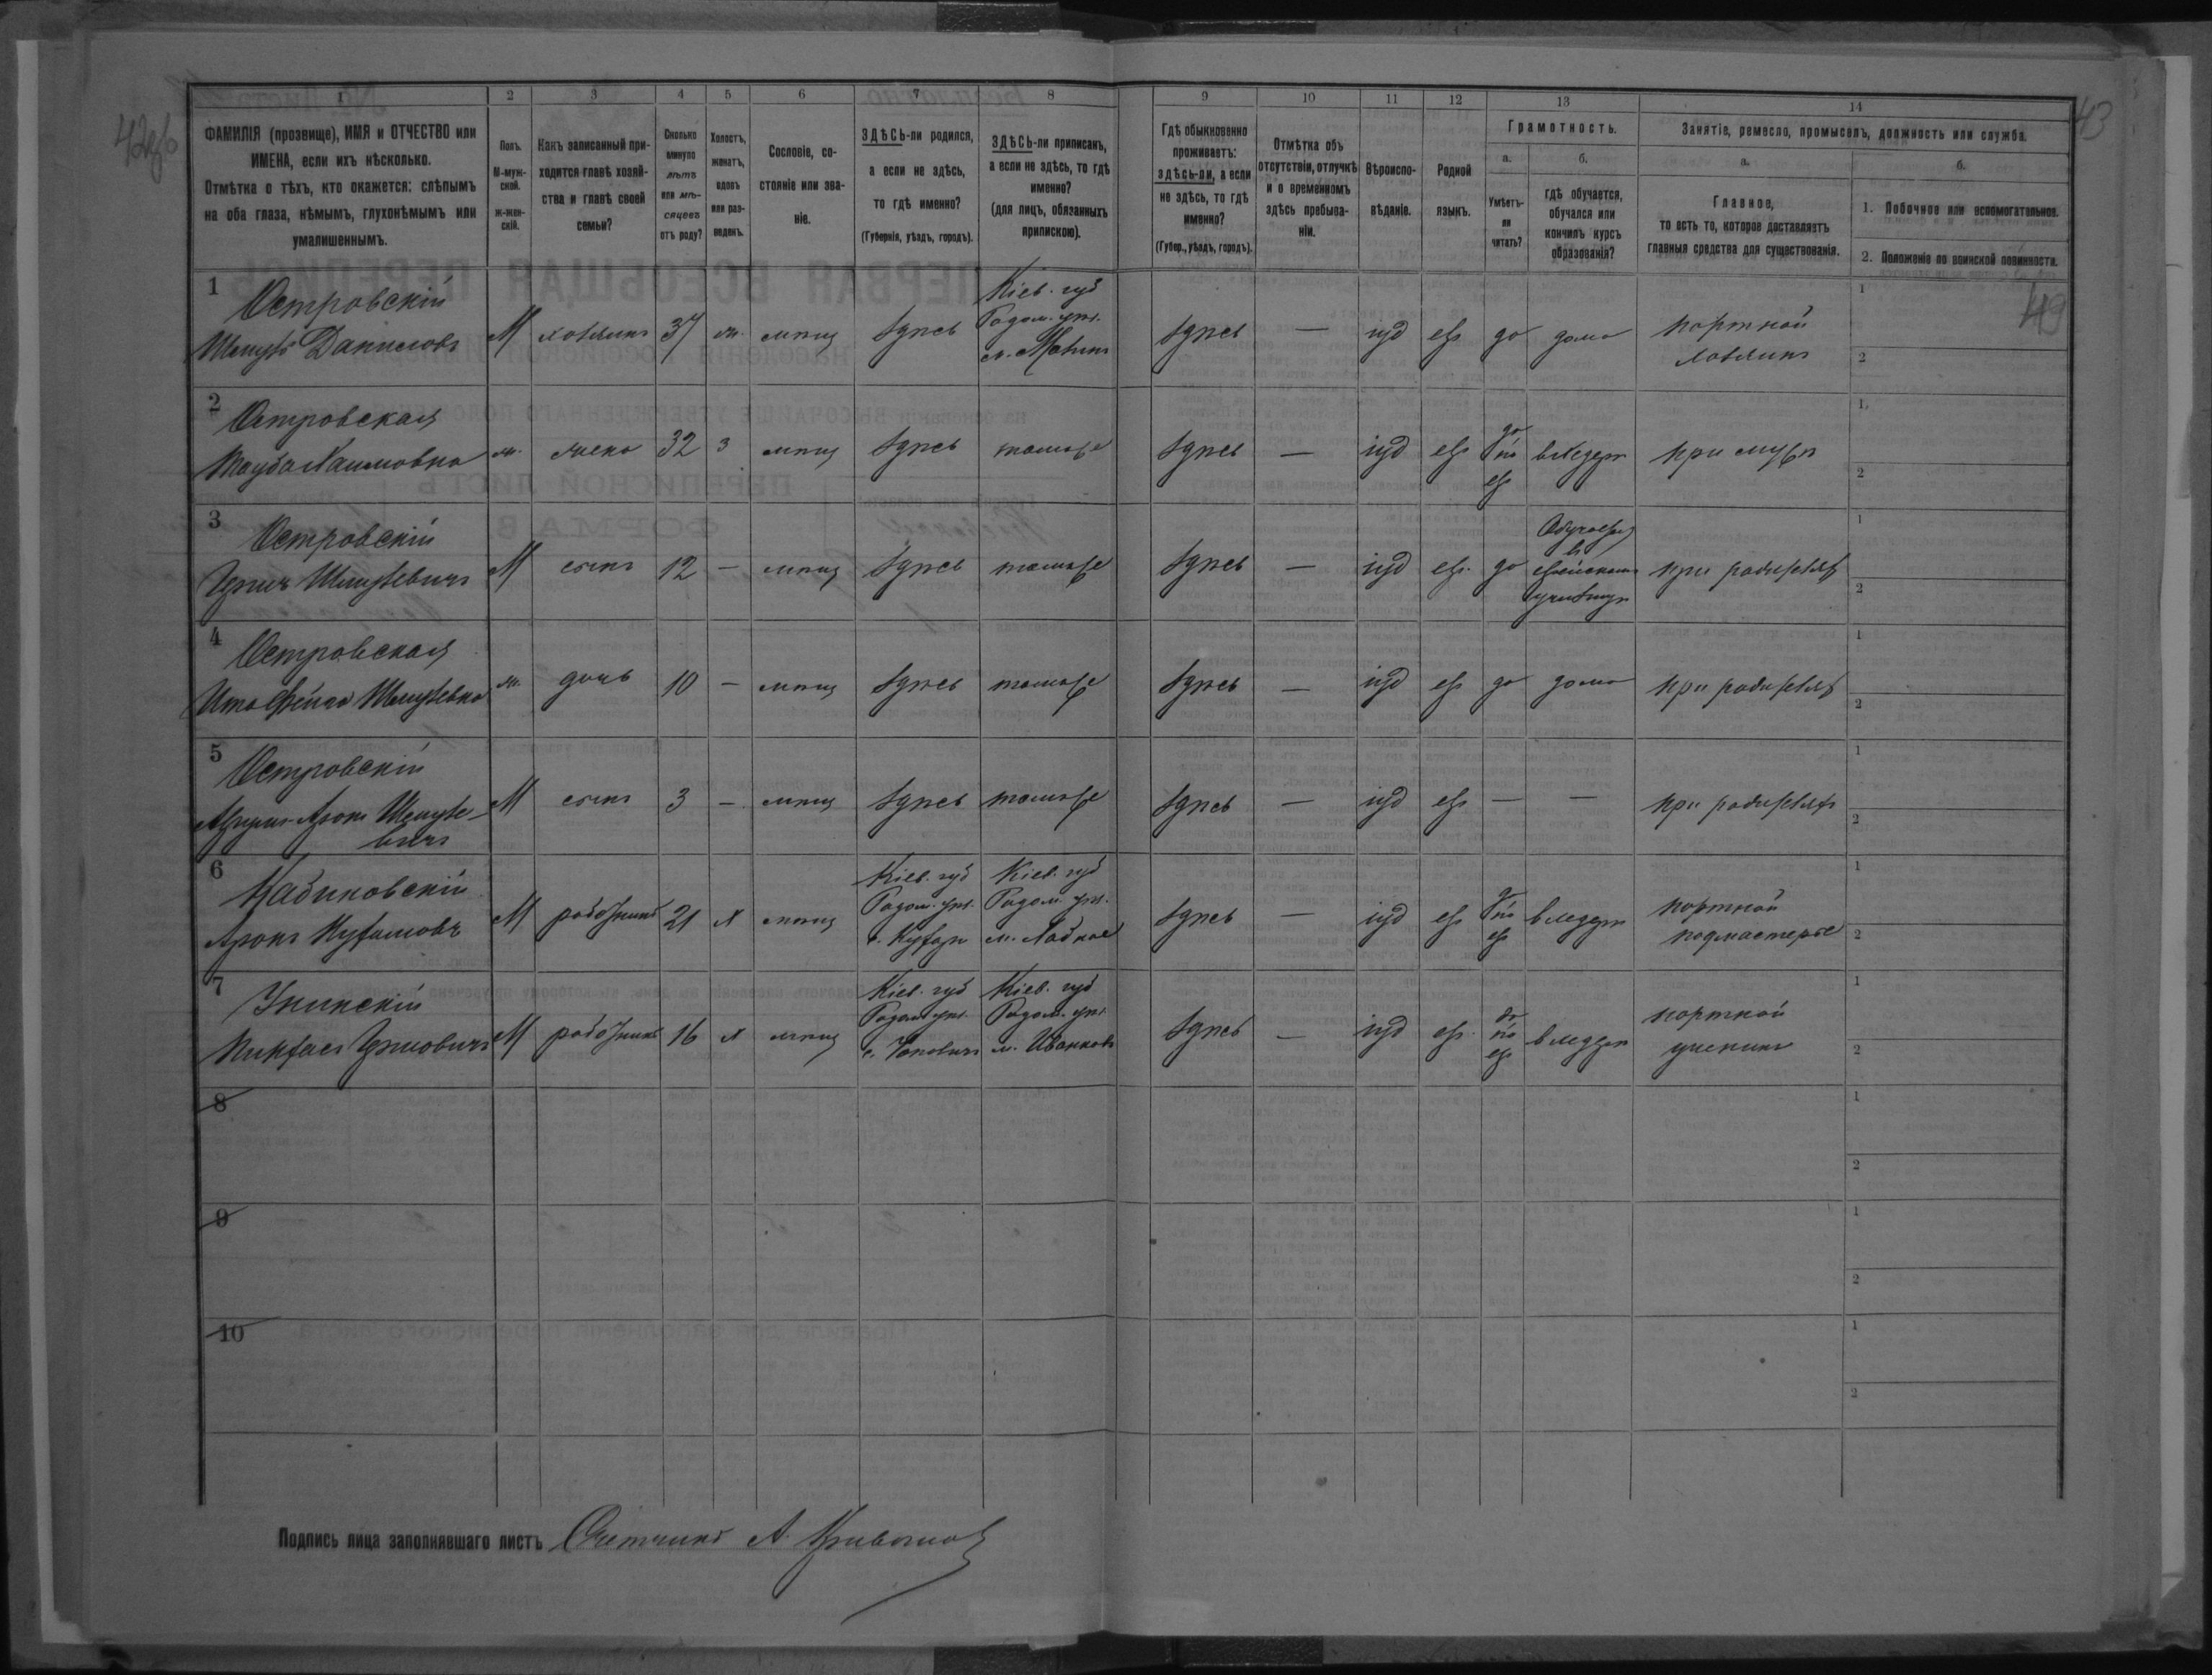 42об
43
49
1 2 3 4 5 6 7 8 9 10 11 12 13 14
ФАМИЛІЯ (прозвище), ИМЯ и ОТЧЕСТВО или
ИМЕНА, если ихъ нѣсколько.
Отмѣтка о тѣхъ, кто окажется: слѣпымъ
на оба глаза, нѣмымъ, глухонѣмымъ или
умалишеннымъ.
Полъ.
М-муж-
ской.
ж-жен-
скій.
Какъ записанный при-
ходится главѣ хозяй-
ства и главѣ своей
семьи?
Сколько
минуло
лѣтъ
или мѣ-
сяцевъ
отъ роду?
Холостъ,
женатъ,
вдовъ
или раз-
веденъ.
Сословіе, со-
стояніе или зва-
ніе.
ЗДѢСЬ-ли родился,
а если не здѣсь,
то гдѣ именно?
(Губернія, уѣздъ, городъ).
ЗДѢСЬ-ли приписанъ,
а если не здѣсь, то гдѣ
именно?
(для лицъ, обязанныхъ
припискою).
Гдѣ обыкновенно
проживаетъ:
здѣсь-ли, а если
не здѣсь, то гдѣ
именно?
(Губер., уѣздъ, городъ).
Отмѣтка объ
отсутствіи, отлучкѣ
и о временномъ
здѣсь пребыва-
ніи.
Вѣроиспо-
вѣданіе.
Родной
языкъ.
Грамотность.
а.
Умѣетъ-
ли
читать?
б.
гдѣ обучается,
обучался или
кончилъ курсъ
образованія?
Занятіе, ремесло, промыселъ, должность или служба.
а.
Главное,
то есть то, которое доставляетъ
главныя средства для существованія.
б.
1. Побочное или вспомогательное.
2. Положеніе по воинской повинности.
1 Островскій
Даниловъ М хозяинъ 37 ж. мѣщ здѣсь
Кіев. губ
Радом. уѣз.
здѣсь — іуд евр да дома
портной
хозяинъ
1
2
2 Островская
Хаимовна ж. жена 32 з мѣщ здѣсь тамъже
здѣсь — іуд евр
да
по
евр
в хедере при мужѣ
1
2
3 Островскій
М сынъ 12 — мѣщ здѣсь тамъже
здѣсь — іуд евр. да
в
еврейскомъ
при родителях
1
2
4 Островская
ж. дочь 10 — мѣщ здѣсь тамъже
здѣсь — іуд евр да дома при родителях
1
2
5 Островскій
Аронъ
вичъ
М сынъ 3 — мѣщ здѣсь тамъже
здѣсь — іуд евр — — при родителях
1
2
6
Аронъ М работникъ 21 х мѣщ
Кіев. губ
Радом. уѣз.
Кіев. губ
Радом. уѣз.
здѣсь — іуд евр
да
по
евр
в хедерѣ
портной
подмастерье
1
2
7
М работникъ 16 х мѣщ
Кіев. губ
Радом. уѣз.
Кіев. губ
Радом. уѣз.
м. Иванковъ
здѣсь — іуд евр.
да
по
евр
в хедерѣ
портной
ученикъ
1
2
8
1
2
9
1
2
10
1
2
Подпись лица заполнявшаго листъ Счетчикъ А.